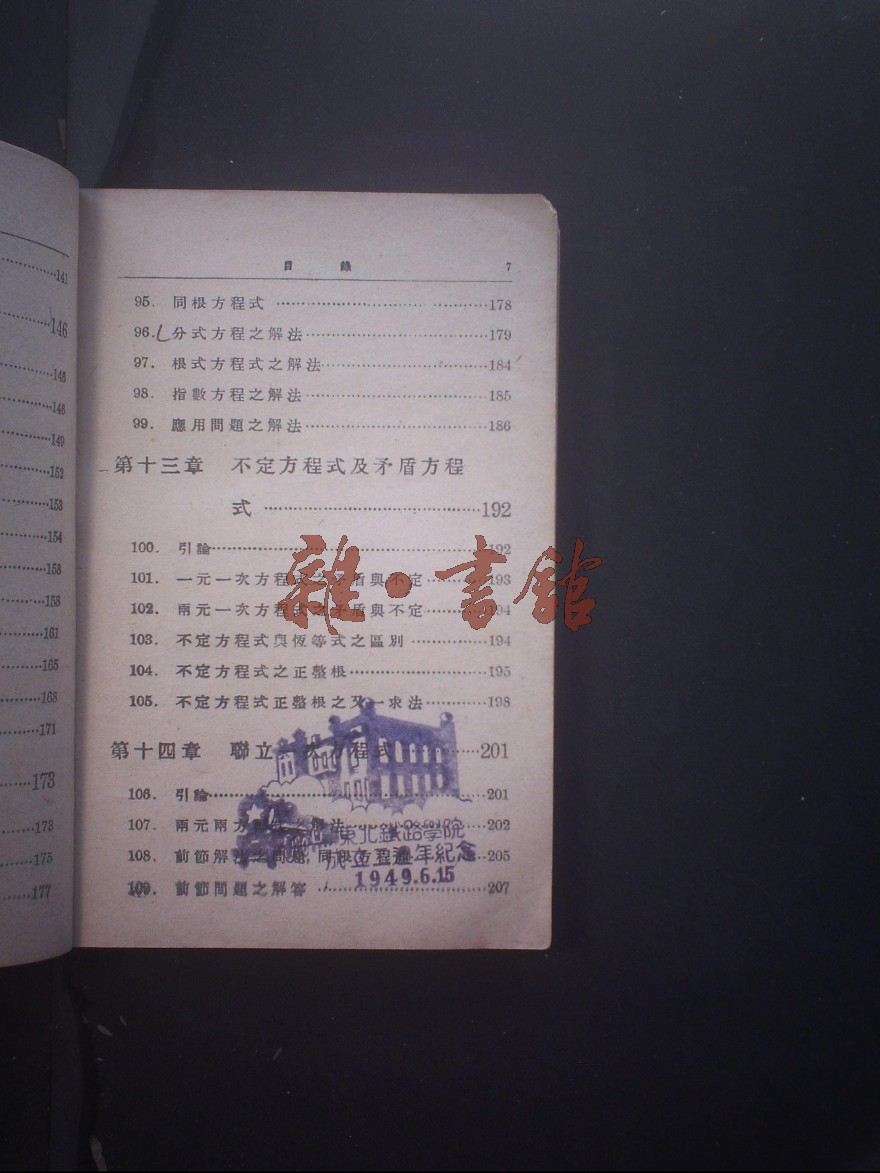 141
146
148
148
149
152
153
154
158
158
161
165
168
171
173
173
175
177
目 錄 7
95. 同根方程式 178
96. 分式方程之解法 179
97. 根式方程式之解法 184
98. 指數方程之解法 185
99. 應用問題之解法 186
第十三章 不定方程式及矛盾方程
式 192
100. 引論 192
101. 一元一次方程式之矛盾與不定 193
102. 兩元一次方程式之矛盾與不定 194
雜·書館
103. 不定方程式與恆等式之區別 194
104. 不定方程式之正整根 195
105. 不定方程式正整根之又一求法 198
第十四章 聯立一次方程式 201
106. 引論 201
107. 兩元兩方程式之解法 202
108. 前節解法之問題,同根方程組 205
109. 前節問題之解答 207
東北鐵路學院
成立三週年紀念
1949.6.15